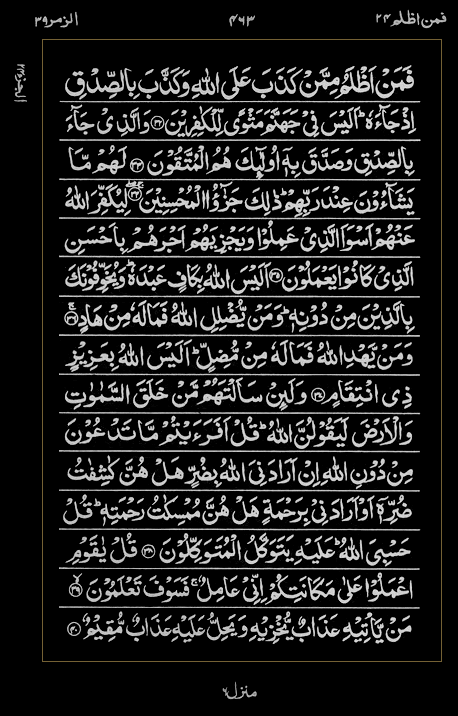 فمن اظلم ۲۴
۴۶۳
الزمر ۳۹
فَمَنْ اَظْلَمُ مِمَّنْ كَذَبَ عَلَى اللّٰهِ وَكَذَّبَ بِالصِّدْقِ
اِذْ جَآءَهٗ ؕ اَلَيْسَ فِيْ جَهَنَّمَ مَثْوًى لِّلْكٰفِرِيْنَ ۝۳۲ وَالَّذِيْ جَآءَ
بِالصِّدْقِ وَصَدَّقَ بِهٖۤ اُولٰٓئِكَ هُمُ الْمُتَّقُوْنَ ۝۳۳ لَهُمْ مَّا
يَشَآءُوْنَ عِنْدَ رَبِّهِمْ ؕ ذٰلِكَ جَزٰٓؤُا الْمُحْسِنِيْنَ ۝۳۴ لِيُكَفِّرَ اللّٰهُ
عَنْهُمْ اَسْوَاَ الَّذِيْ عَمِلُوْا وَيَجْزِيَهُمْ اَجْرَهُمْ بِاَحْسَنِ
الَّذِيْ كَانُوْا يَعْمَلُوْنَ ۝۳۵ اَلَيْسَ اللّٰهُ بِكَافٍ عَبْدَهٗ ؕ وَيُخَوِّفُوْنَكَ
بِالَّذِيْنَ مِنْ دُوْنِهٖ ؕ وَمَنْ يُّضْلِلِ اللّٰهُ فَمَا لَهٗ مِنْ هَادٍ ۝۳۶
وَمَنْ يَّهْدِ اللّٰهُ فَمَا لَهٗ مِنْ مُّضِلٍّ ؕ اَلَيْسَ اللّٰهُ بِعَزِيْزٍ
ذِي انْتِقَامٍ ۝۳۷ وَلَئِنْ سَاَلْتَهُمْ مَّنْ خَلَقَ السَّمٰوٰتِ
وَالْاَرْضَ لَيَقُوْلُنَّ اللّٰهُ ؕ قُلْ اَفَرَءَيْتُمْ مَّا تَدْعُوْنَ
مِنْ دُوْنِ اللّٰهِ اِنْ اَرَادَنِيَ اللّٰهُ بِضُرٍّ هَلْ هُنَّ كٰشِفٰتُ
ضُرِّهٖۤ اَوْ اَرَادَنِيْ بِرَحْمَةٍ هَلْ هُنَّ مُمْسِكٰتُ رَحْمَتِهٖ ؕ قُلْ
حَسْبِيَ اللّٰهُ ؕ عَلَيْهِ يَتَوَكَّلُ الْمُتَوَكِّلُوْنَ ۝۳۸ قُلْ يٰقَوْمِ
اعْمَلُوْا عَلٰى مَكَانَتِكُمْ اِنِّيْ عَامِلٌ ۚ فَسَوْفَ تَعْلَمُوْنَ ۝۳۹
مَنْ يَّاْتِيْهِ عَذَابٌ يُّخْزِيْهِ وَيَحِلُّ عَلَيْهِ عَذَابٌ مُّقِيْمٌ ۝۴۰
منزل ۶